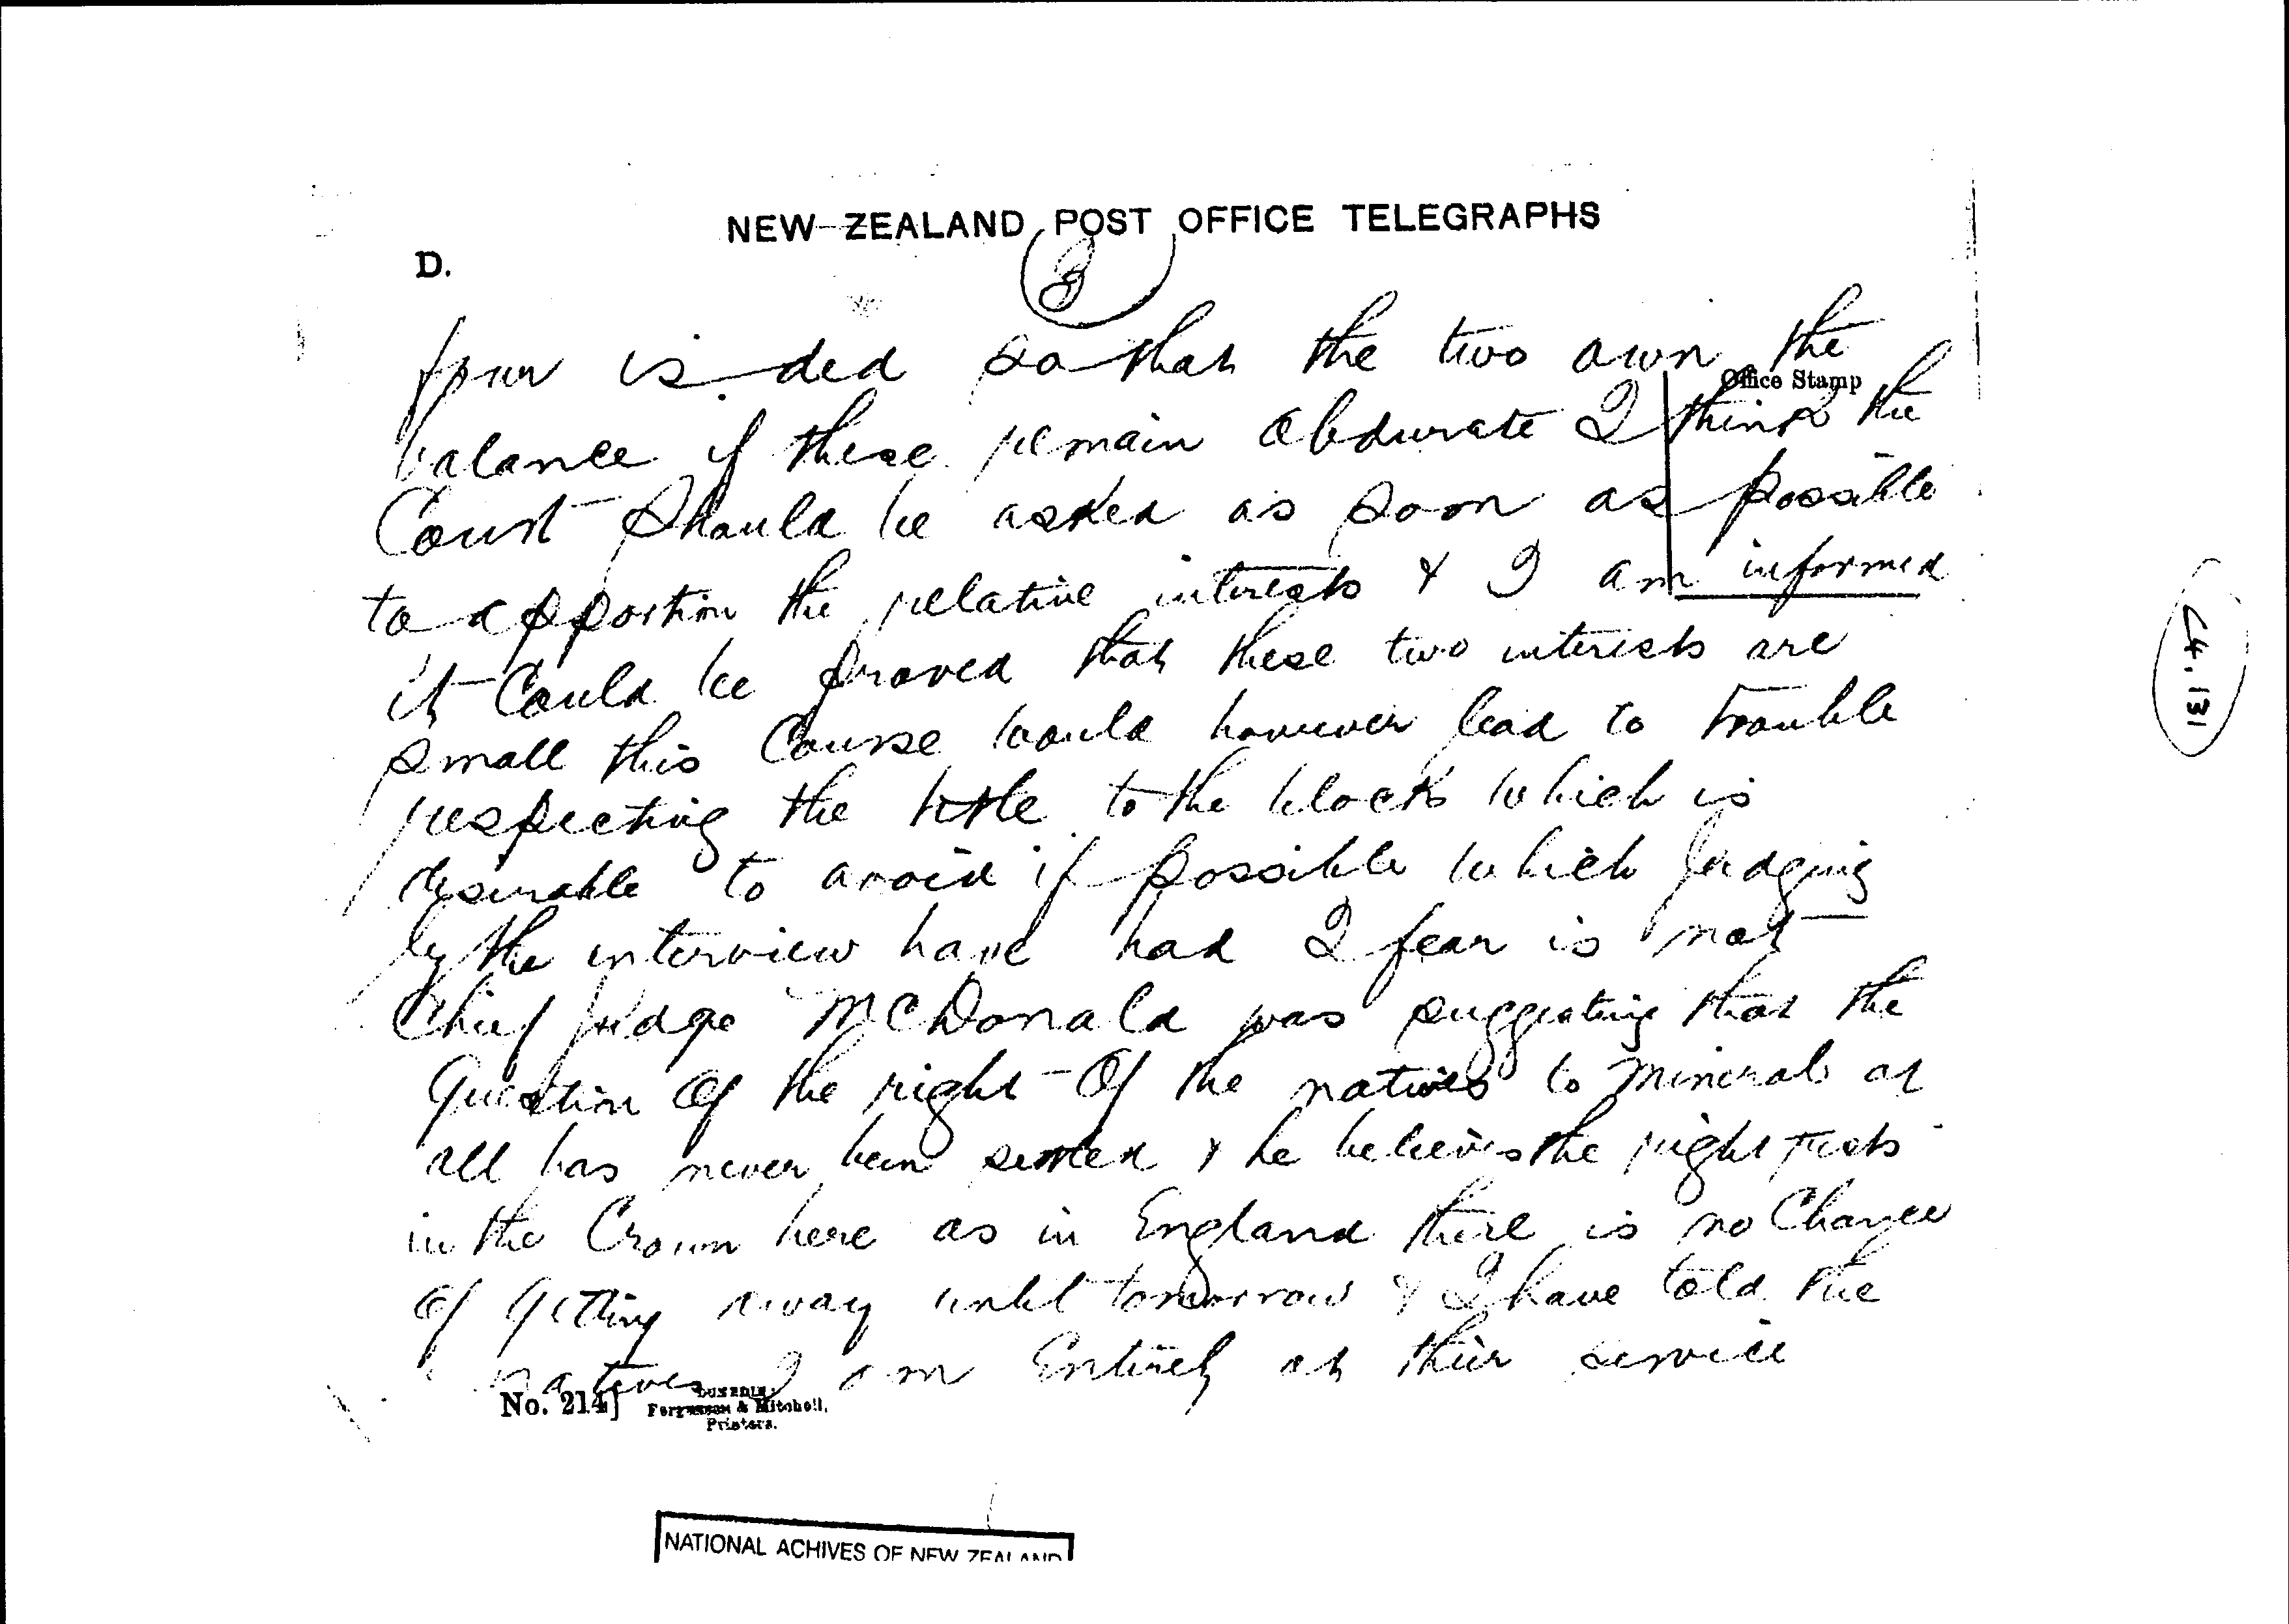 NEW ZEALAND POST OFFICE TELEGRAPHS
D.
3
four is ded so that the two own the
Office Stamp
balance if these remain obdurate I think the
Court should be asked as soon as possible
to apportion the relative interests & I am informed
it Could be proved that these two interests are
small this Course would however lead to trouble
respecting the title to the blocks which is
desirable to avoid if possible which judging
by the interview have had I fear is not
Chief Judge McDonald was suggesting that the
Question Of the right Of the natives to minerals at
all has never been settled & he believes the right rests
in the Crown here as in England there is no Chance
Of Getting away until tomorrow & I have told the
natives I am Entirely at their service
No. 214]
DUNEDIN:
Fergusson & Mitchell,
Printers.
NATIONAL ACHIVES OF NEW ZEALAND
24.131